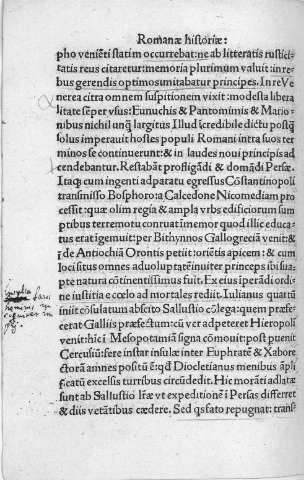 Romanæ historiæ:
pho veniēti statim occurrebat: ne ab litteratis rustici
tatis reus citaretur: memoria plurimum valuit: in re
bus gerendis optimos imitabatur principes. In re Ve
nerea citra omnem suspitionem vixit: modesta libera
litate sēper vsus: Eunuchis & Pantomimis & Mario
nibus nichil unq̄ largitus Illud icredibile dictu postq̄
solus imperauit hostes populi Romani intra suos ter
minos se continuerunt: & in laudes noui principis ad
cendebantur. Restabāt profligādi & domādi Persæ.
Itaq; cum ingenti apparatu egressus Cōstantinopoli
transmisso Bosphoro: a Calcedone Nicomediam pro
cessit: quæ olim regia & ampla vrbs edificiorum sum
ptibus terremotu conruat īmemor quod illic educa
tus erat igemuit: per Bithynnos Gallogrecia venit: &
ī de Antiochiā Orontis petiit: oriētis apicem: & cum
loci situs omnes ad uoluptatē inuiter princeps ibi sua
pte natura cōtinentissimus fuit. Ex eius īperādi ordi
ne iustitia e cœlo ad mortales rediit. Iulianus quartū
iniit cōsulatum abscito Sallustio cōllega: quem præfe
cerat Galliis præfectum: cū ver adpeteret Hieropolī
venit: hic ī Mesopotamiā signa cōmouit: post puenit
Cercusiū: fere instar insulæ inter Euphratē & Xabore
ctorā amnes positū ē: qđ Diocletianus menibus āpli
ficatū excelsis turribus circūdedit. Hic morāti adlatæ
sunt ab Sallustio lræ vt expeditionē ī Persas differret
& diis vetātibus cædere. Sed qs fato repugnat: trans